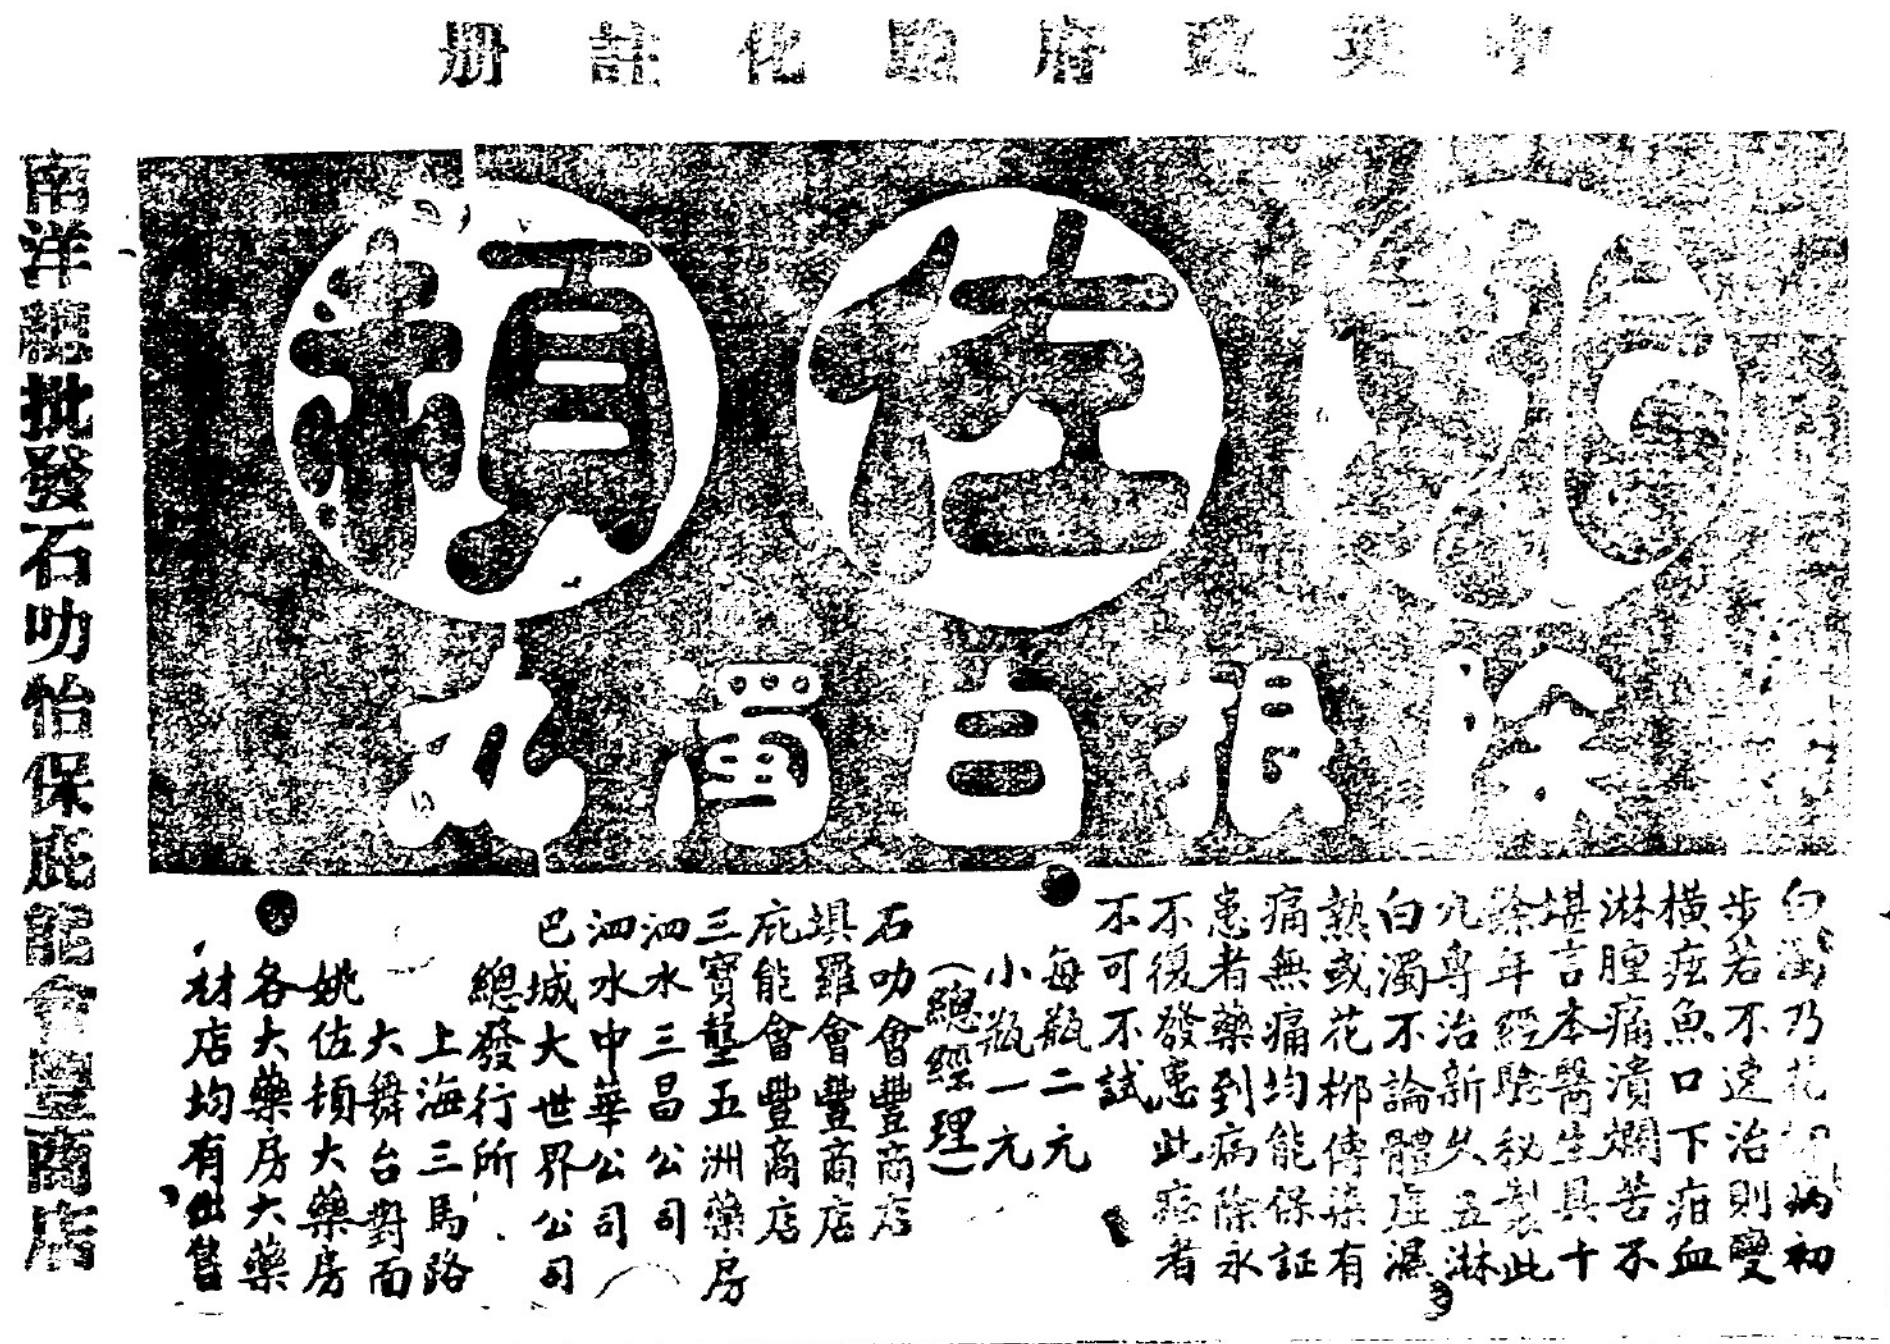 中英政府驗化註冊
姚佐頓
除根白濁丸
白濁乃花柳病初
步若不速治則變
橫痃魚口下疳血
淋腫痛潰爛苦不
堪言本醫生具十
餘年經驗秘製此
丸專治新久五淋
白濁不論體虛濕
熱或花柳傳染有
痛無痛均能保証
患者藥到病除永
不復發患此症者
不可不試
每瓶二元
小瓶一元
(總經理)
石叻會豐商店
埧羅會豐商店
庇能會豐商店
三寶壟五洲藥房
泗水三昌公司
泗水中華公司
巴城大世界公司
總發行所
上海三馬路
大舞台對面
姚佐頓大藥房
各大藥房大藥
材店均有出售
南洋總批發石叻怡保庇能會豐商店